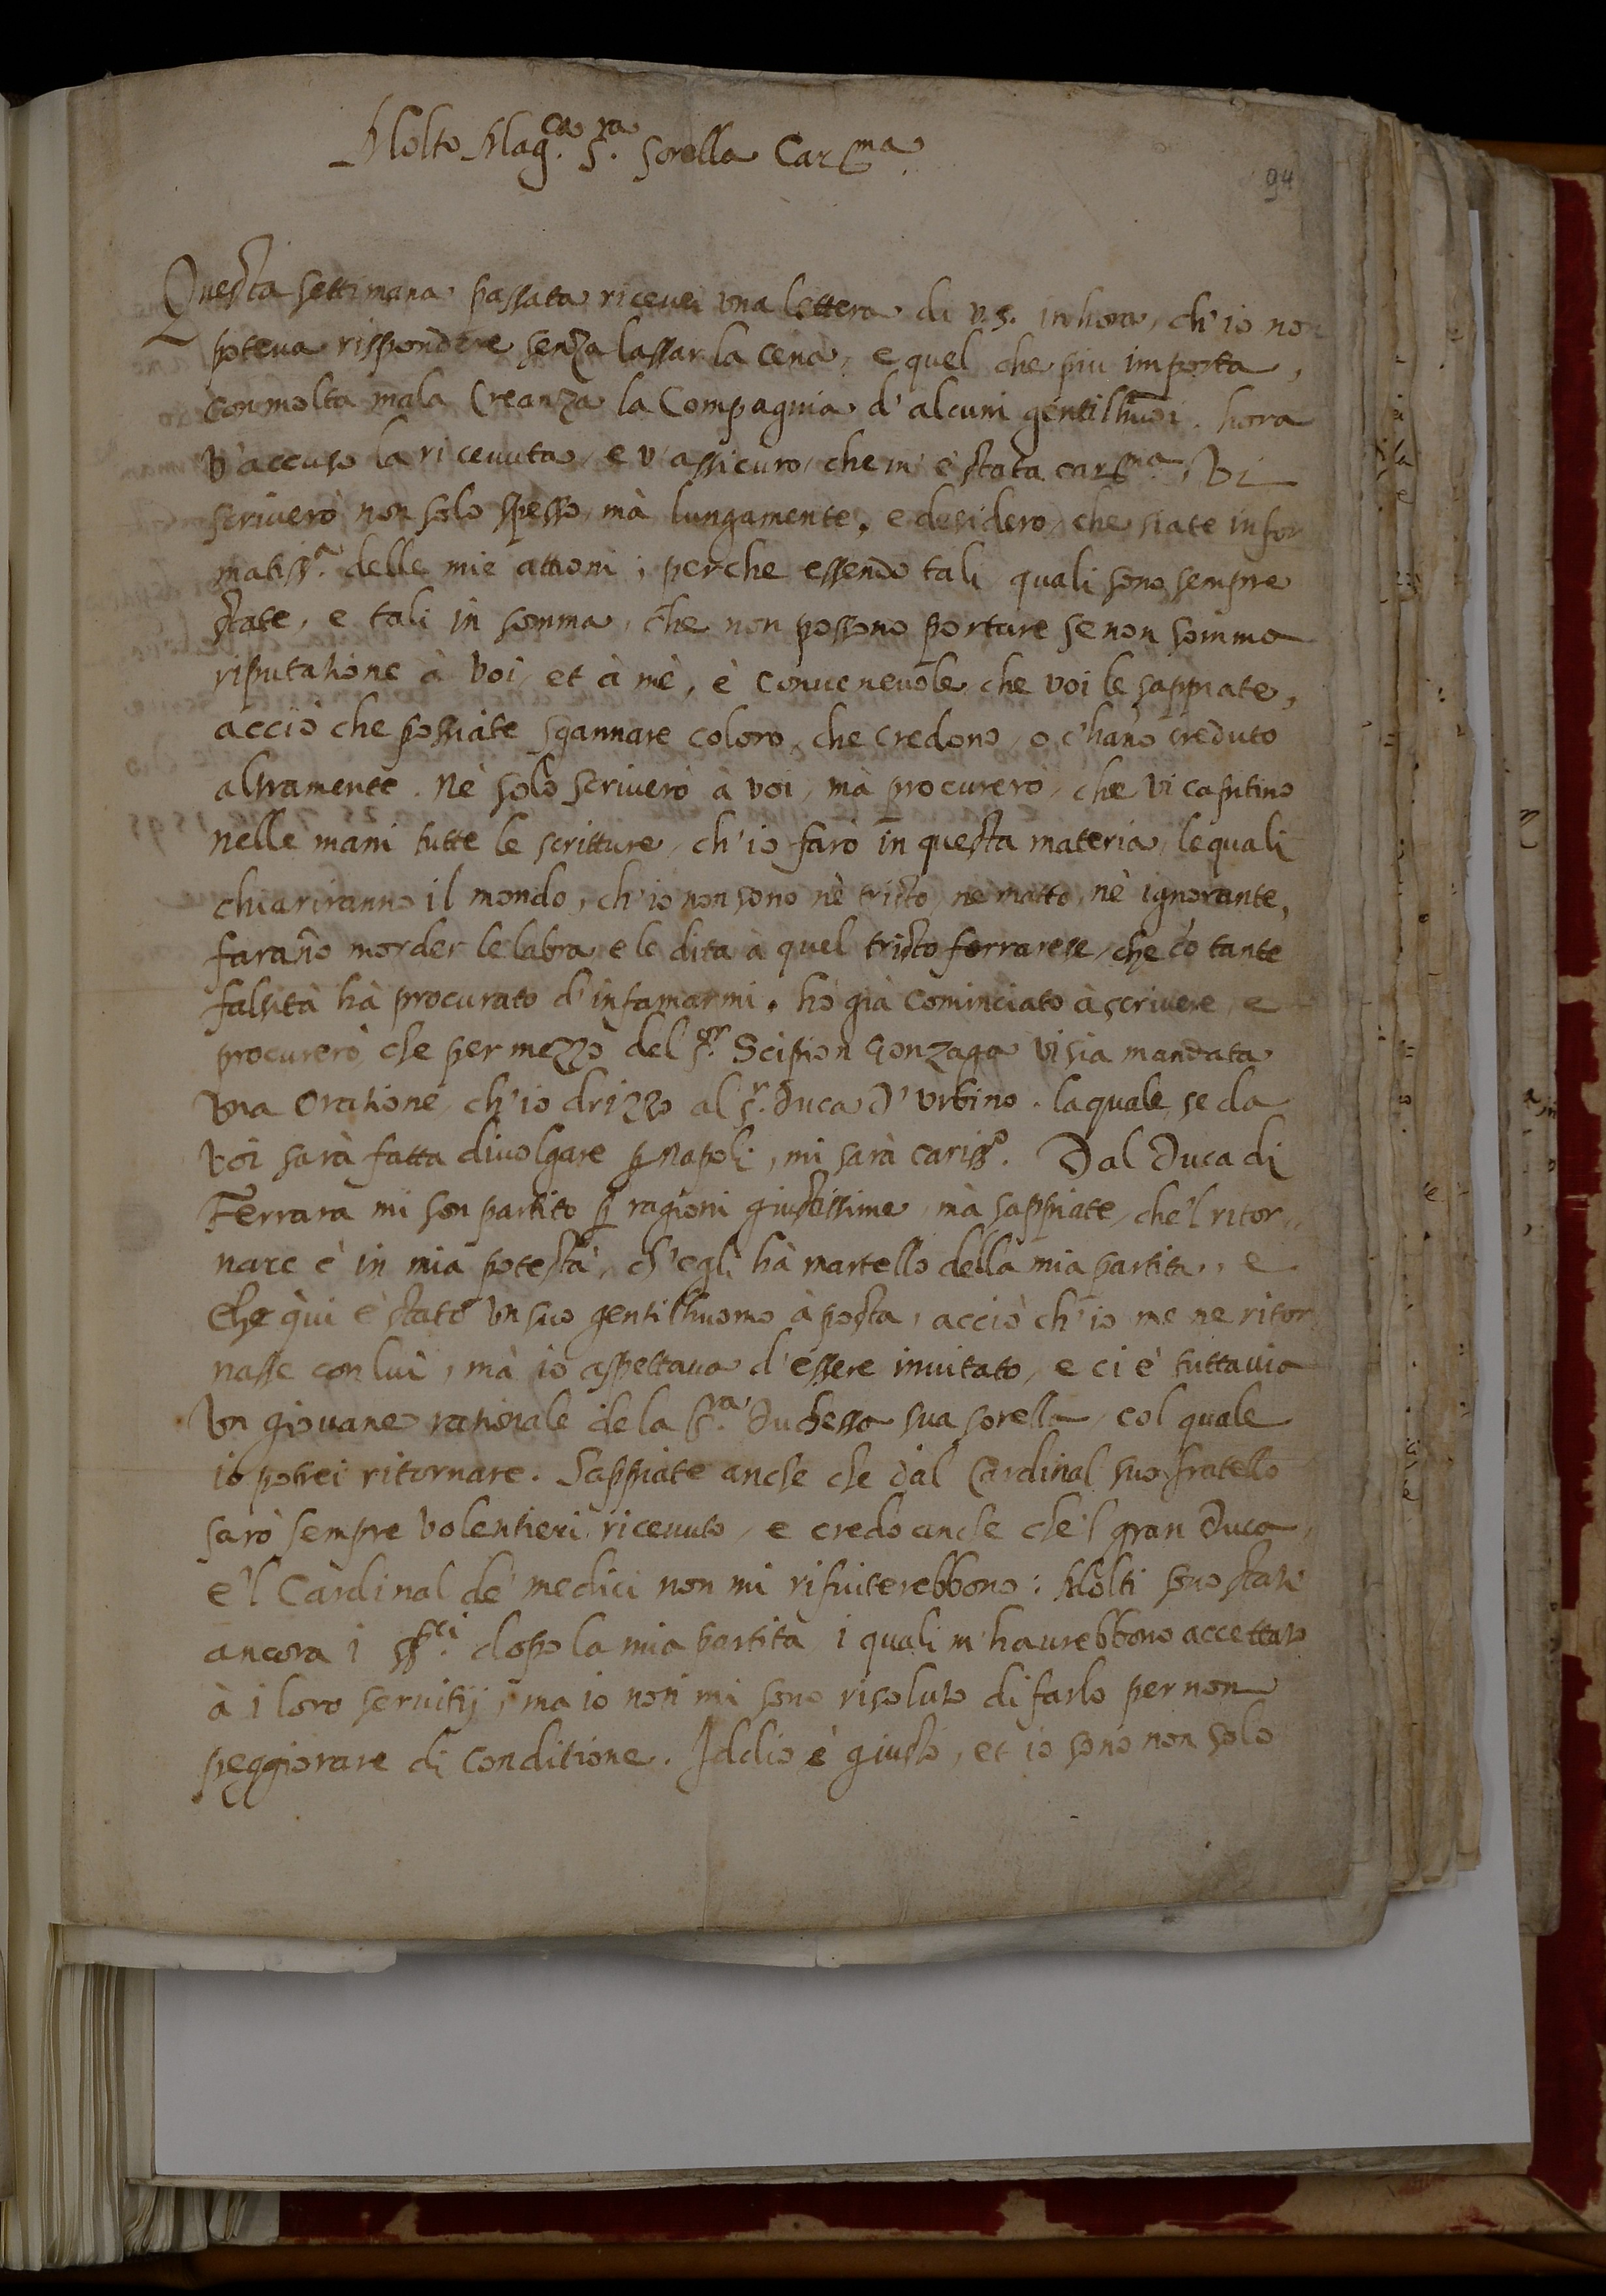 Molto Mag.ca S.ra Sorella Car.ma
94
Questa settimana passata ricevei una lettera di V.S. in hora, ch'io non
poteva rispondere senza lassar la cena, e quel che piu importa,
con molta mala creanza la Compagnia d'alcuni gentilhuoi. hora
v'accuso la ricevuta, e v'assicuro, che m'è stata carma. Vi
scriverò non solo spesso, mà lungamente, e desidero, che siate infor
matiss.a delle mie attioni; perche essendo tali quali sono sempre
state, e tali in somma, che non possono portare se non somma
riputatione à voi, et à mè, è convenevole, che voi le sappiate,
acciò che possiate sgannare coloro, che credono, o c'hanno creduto
altramente. Nè solo scriverò à voi, mà procurerò, che vi capitino
nelle mani tutte le scritture, ch'io farò in questa materia, le quali
chiariranno il mondo, ch'io non sono nè tristo, nè matto, nè ignorante,
faranno morder le labra, e le dita à quel tristo ferrarese, che cō tante
falsità hà procurato d'infamarmi. hò già cominciato à scrivere, e
procurerò, che per mezzo del S.or Scipion Gonzaga vi sia mandata
una Oratione, ch'io drizzo al S.r Duca d'Urbino. la quale se da
voi sarà fatta divolgare ꝑ Napoli, mi sarà cariss.o. Dal Duca di
Ferrara mi son partito ꝑ ragioni giustissime, mà sappiate, che'l ritor
nare è in mia potestà, ch'egli hà martello della mia partita, e
che qui è stato un suo gentilhuomo à posta, acciò ch'io me ne ritor
nasse con lui, mà io aspettava d'essere invitato, e ci è tuttavia
un giovane rationale de la S.ra Duchessa sua sorella, col quale
io potrei ritornare. Sappiate anche che dal Cardinal suo fratello
sarò sempre volentieri ricevuto, e credo anche che'l gran Duca,
e'l Cardinal de' medici non mi rifiuterebbono: Molti sono stati
ancora i dopo la mia partita i quali m'havrebbono accettato
à i loro servitij, ma io non mi sono risoluto di farlo per non
peggiorare di conditione. Iddio è giusto, et io sono non solo